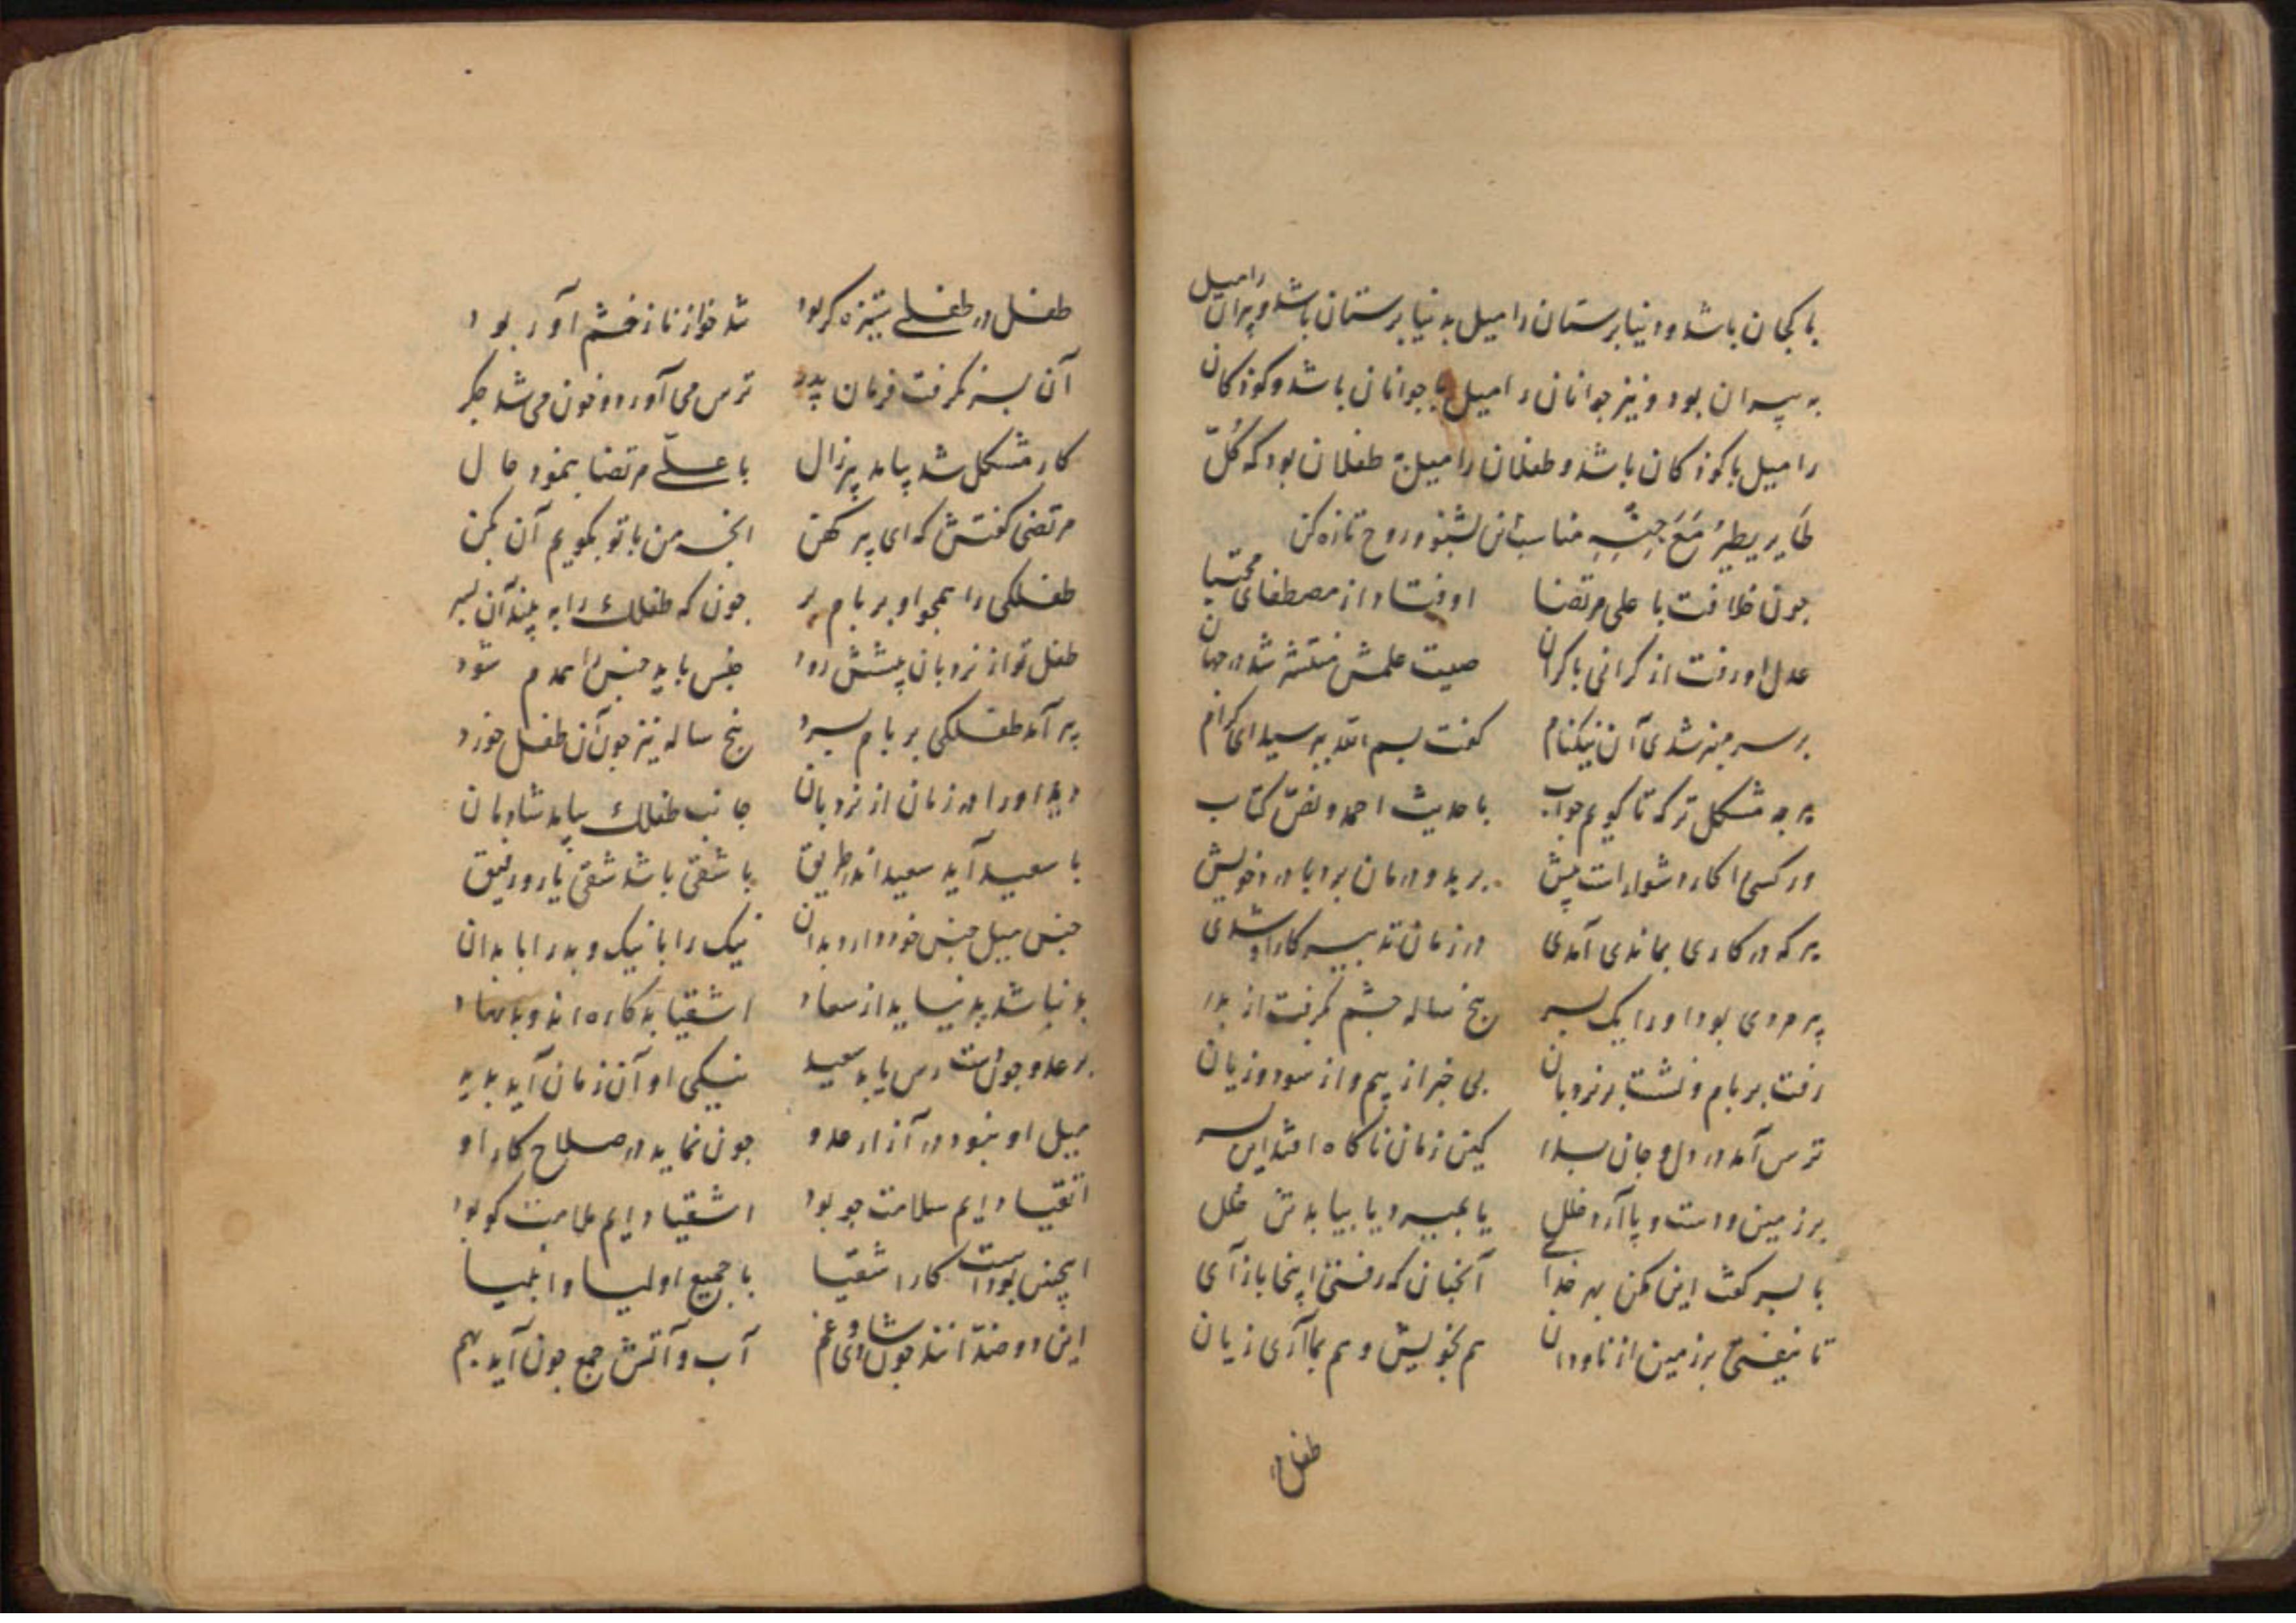 با کجان باشد و دنیا پرستان را میل بدنیا پرستان باشد و پیران را میل
به پیران بود و نیز جوانان را میل با جوانان باشد و کوذکان
را میل با کوذکان باشد و طفلان را میل به طفلان بود که کُلّ
طَایرٍ یطیرُ مَعَ جِنسِهِ مناسب این بشنو و روح تازه کن
جون خلافت با علی مرتضا اوفتاد از مصطفای مجتبا
عدل او رفت از کرانی با کران صیت علمش منتشر شد در جهان
بر سر منبر شدی آن نیکنام کفت بسم الله بپرسید ای کرام
هر جه مشکل تر که تا کویم جواب با حدیث احمد و نصّ کتاب
ور کسی را کار دشوار است پیش برید و درمان برد با درد خویش
هر که در کاری بماندی آمدی در زمان تدبیر کار او شدی
پیر مردی بود او را یک پسر پنج ساله جشم کرفت از پدر
رفت بر بام و نشست بر نردبان بی خبر از بیم و از سود و زیان
ترس آمد در دل و جان پدر کین زمان ناکاه افتد این پسر
بر زمین و دست و پا آرد خلل یا بمیرد یا بیابد تن خلل
با پسر کفت این مکن بهر خدای آنجنان که رفتی اینجا باز آی
تا نیفتی بر زمین از ناودان هم بخویش و هم بما آری زیان
طفل در
طفل در طفلی ستیزه کر بود شد خو از ناز خشم آور بود
آن پسر نکرفت فرمان پدر ترس می آورد و خون می شد جکر
کار مشکل شد بیامد پیر زال با علیّ مرتضا بنمود حال
مرتضی کفتش که ای پیر کهن انجه من با تو بکویم آن بکن
طفلکی را همجو او بر بام بر جون که طفلک را به بیند آن پسر
طفل تو از نردبان پیشش رود جنس باید جنس را همدم شود
پیر آمد طفلکی بر بام برد پنج ساله نیز جون آن طفل خورد
دید او را در زمان از نردبان جانب طفلک بیامد شادمان
با سعید آید سعید اندر طریق با شقی باشد شقی یار و رفیق
جنس میل جنس خود دارد بدان نیک را با نیک و بد را با بدان
بد نباشد بد نیاید از سعاد اشقیا بد کاره اند و بد نهاد
بر عدو جون دست رس یابد سعید نیکی او آن زمان آید پدید
میل او نبود در آزار عدو جون نماید در صلاح کار او
اتقیا دایم سلامت جو بود اشقیا دایم ملامت کو بود
اینجنین بودست کار اشقیا با جمیع اولیا و انبیا
این دو ضدّ انند جون شادی و غم آب و آتش جمع جون آید بهم